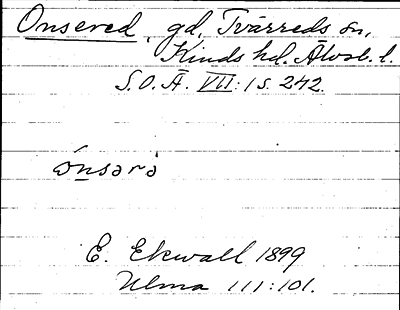 Onsered, gd, Tvärreds sn,
Kinds hd. Älvsb. l.
S.O.Ä. VII:1 s. 242.
ónsərə̀
E. Ekwall 1899
Ulma 111:101.